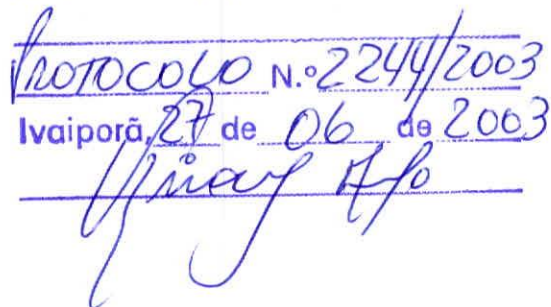 PROTOCOLO N.º 2244/2003
Ivaiporã, 27 de 06 de 2003